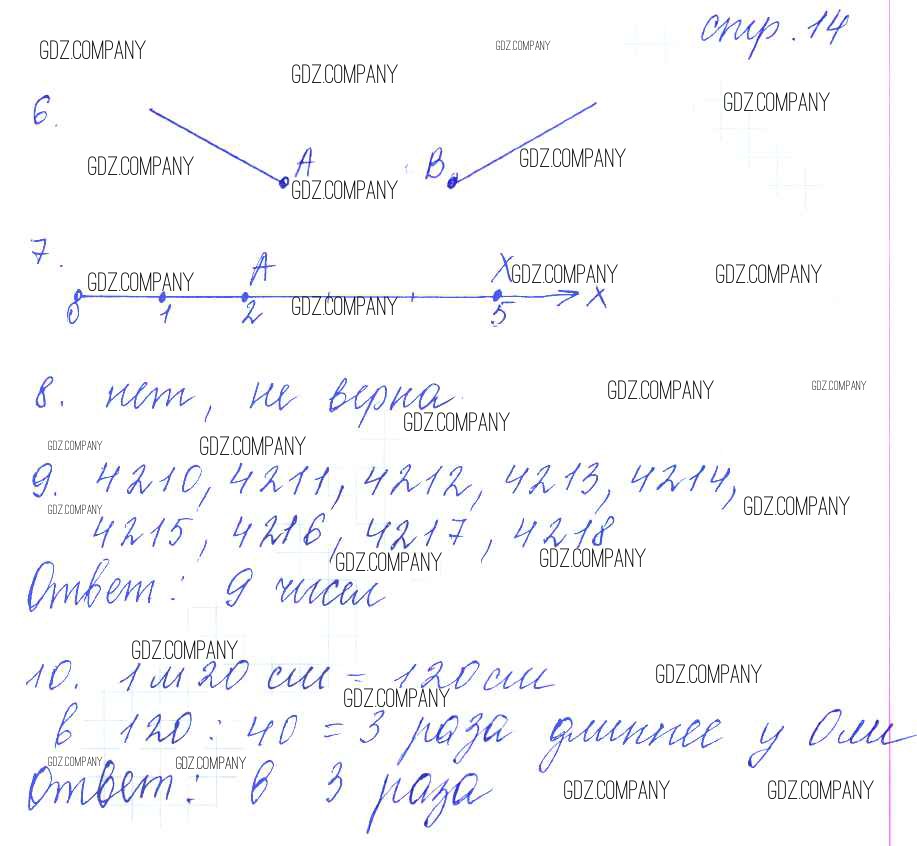 стр. 14
GDZ.COMPANY GDZ.COMPANY
GDZ.COMPANY
6. GDZ.COMPANY
GDZ.COMPANY A B GDZ.COMPANY
GDZ.COMPANY
7. A X GDZ.COMPANY GDZ.COMPANY
GDZ.COMPANY
0 1 2 GDZ.COMPANY 5 X
8. нет, не верна GDZ.COMPANY GDZ.COMPANY
GDZ.COMPANY
GDZ.COMPANY GDZ.COMPANY
9. 4210, 4211, 4212, 4213, 4214,
GDZ.COMPANY GDZ.COMPANY
4215, 4216, 4217, 4218
GDZ.COMPANY GDZ.COMPANY
Ответ: 9 чисел
GDZ.COMPANY
10. 1 м 20 см = 120 см GDZ.COMPANY
GDZ.COMPANY
в 120 : 40 = 3 раза длиннее у Оли
GDZ.COMPANY GDZ.COMPANY
Ответ: в 3 раза GDZ.COMPANY GDZ.COMPANY